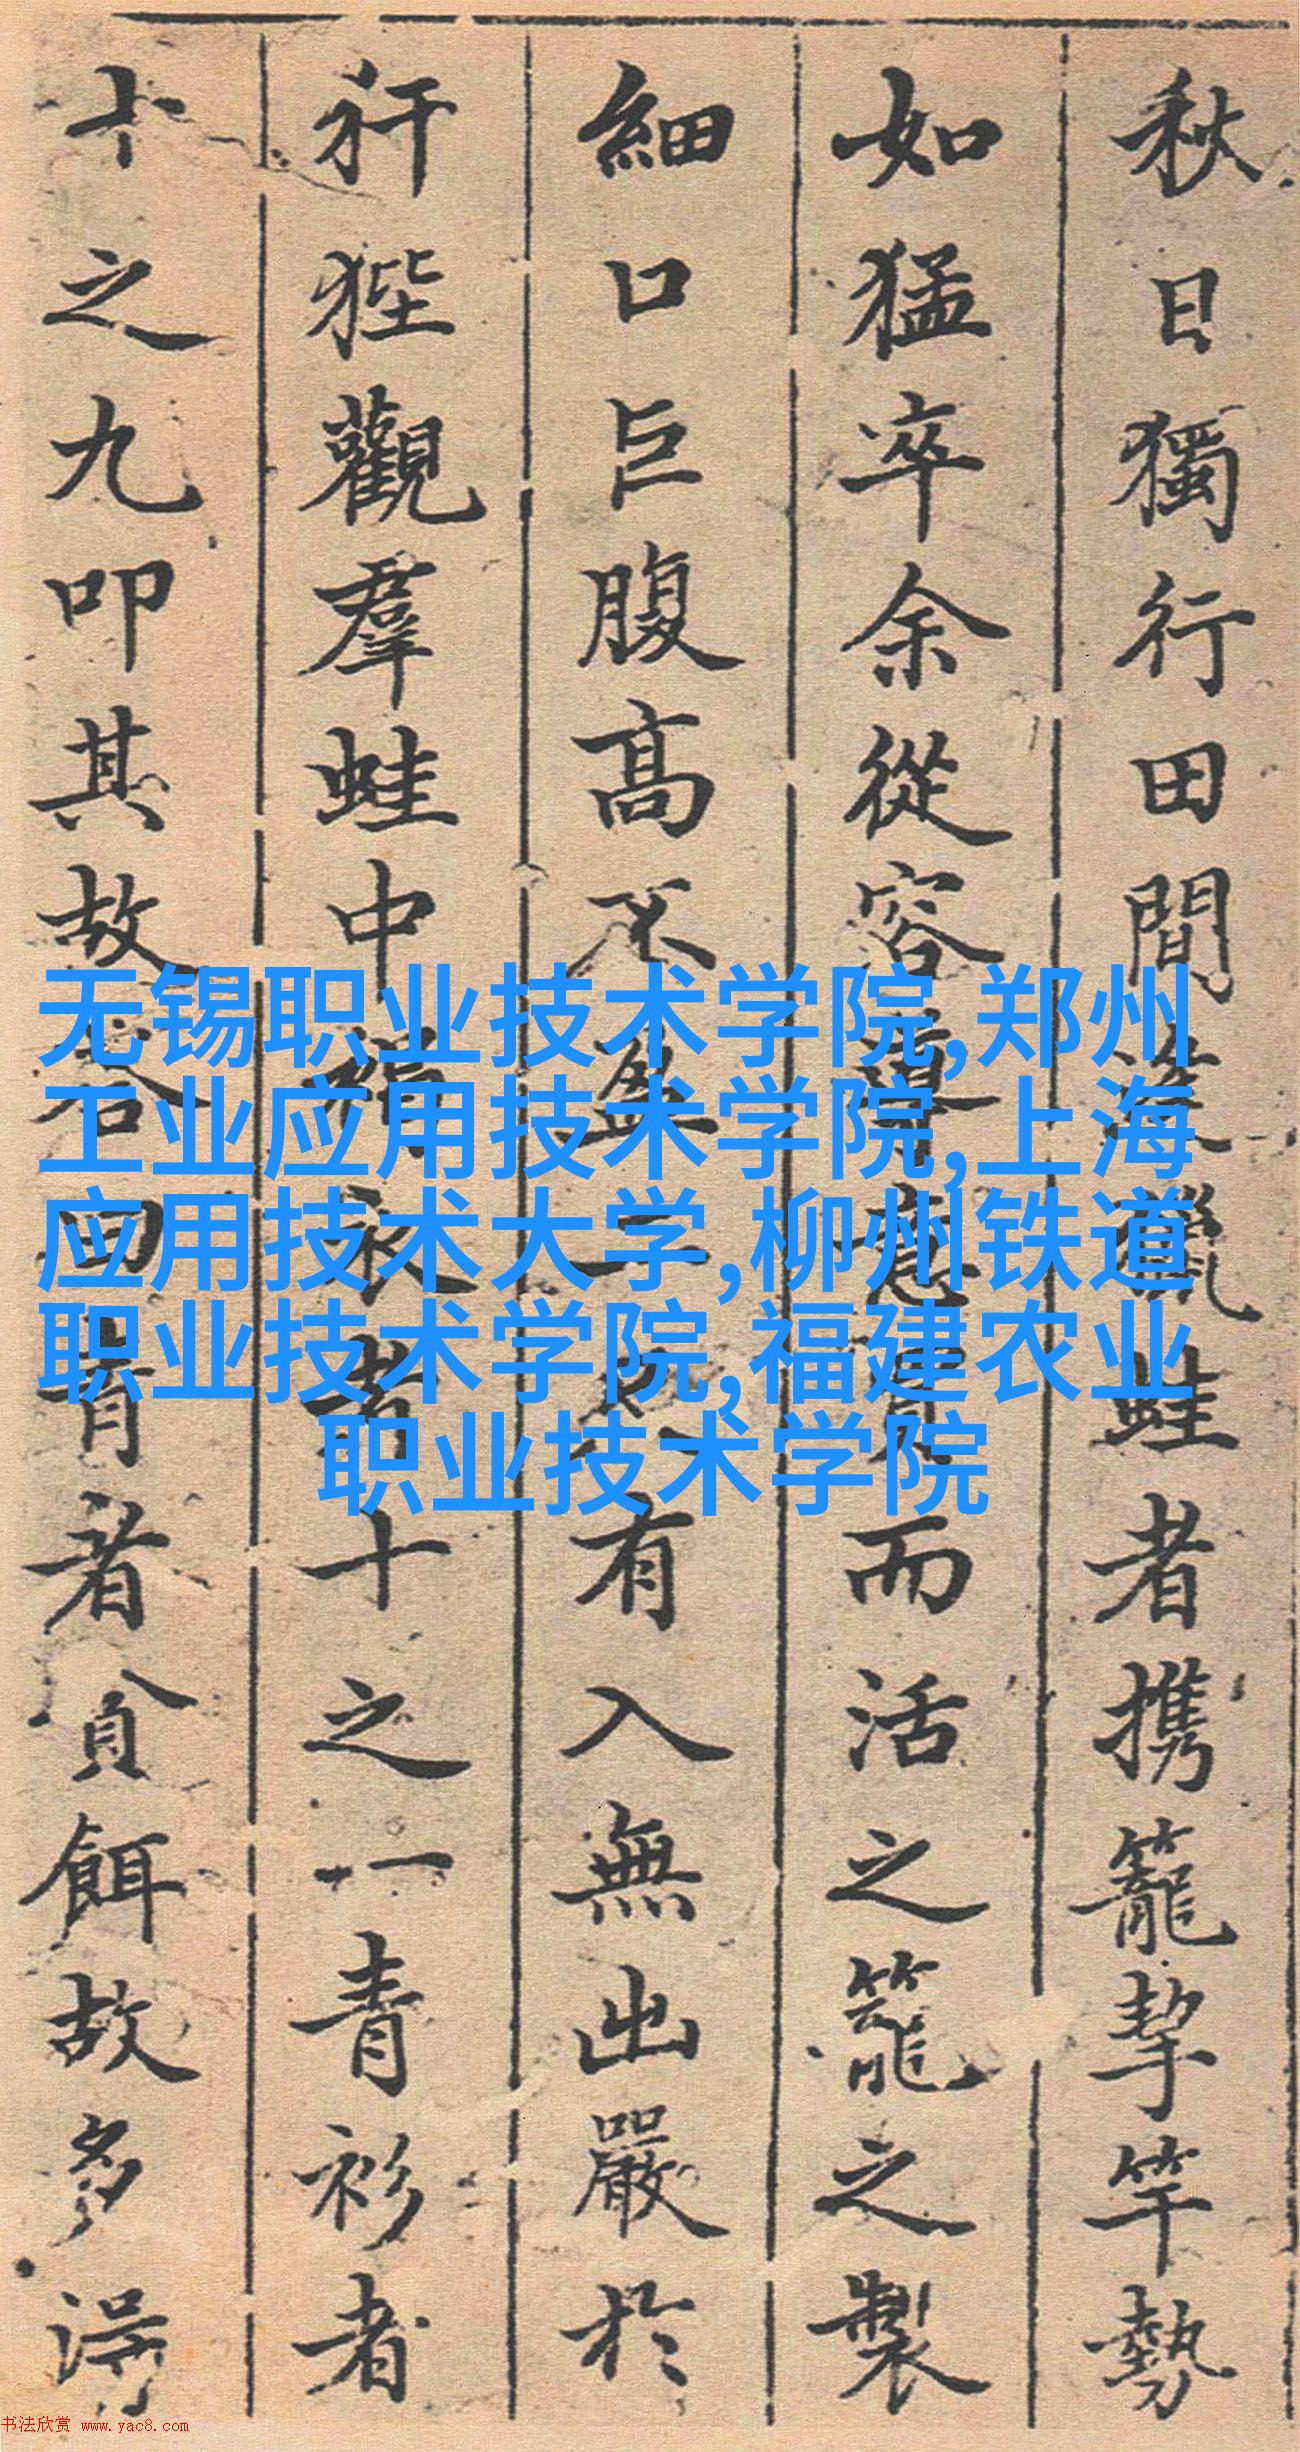 秋日獨行田間蛙者携籠挈竿勢
如猛卒余從容意而活之籠之製
細口巨腹高不盈有入無出嚴於
犴狴觀羣蛙中衣者十之一青衫者
十之九叩其故答曰青者貪餌故多得
无锡职业技术学院,郑州
工业应用技术学院,上海
应用技术大学,柳州铁道
职业技术学院,福建农业
职业技术学院
书法欣赏 www.yac8.com